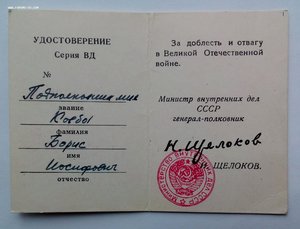 УДОСТОВЕРЕНИЕ
Серия ВД
№
звание
фамилия
Борис
имя
Иосифович
отчество
За доблесть и отвагу
в Великой Отечественной
войне.
Министр внутренних дел
СССР
генерал-полковник
Н. Щелоков
Н. ЩЕЛОКОВ.